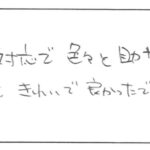 対応で 色々と 助か
きれいで 良かったで